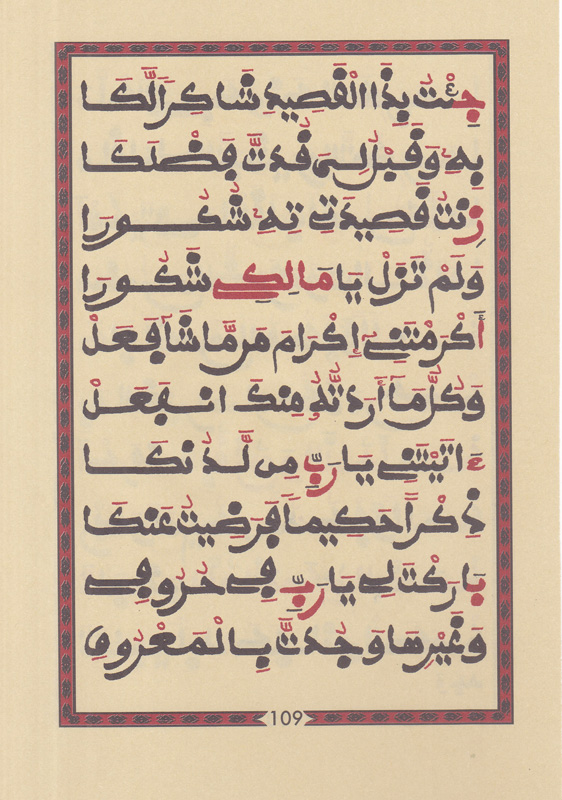 جِئْتُ بِذَا الْقَصِيدِ شَاكِرًا لَّكَا
بِهِ وَقَبْلُ لِي قُدتَّ فَضْلَكَا
زِنْتَ قَصِيدَتِي بِهِ شُكُورَا
وَلَمْ تَزَلْ يَا مَالِكِي شَكُورَا
أَكْرَمْتَنِي إِكْرَامَ مَن مَّا شَآءَ فَعَلْ
وَكُلُّ مَا أَرَدتُّهُ مِنكَ انفَعَلْ
ءَاتَيْتَنِي يَا رَبِّ مِن لَّدُنكَا
ذِكْرًا حَكِيمًا فَرَضِيتُ عَنكَا
بَارَكْتَ لِي يَا رَبِّ فِي حُرُوفِي
وَغَيْرِهَا وَجُدتَّ بِالْمَعْرُوفِ
109